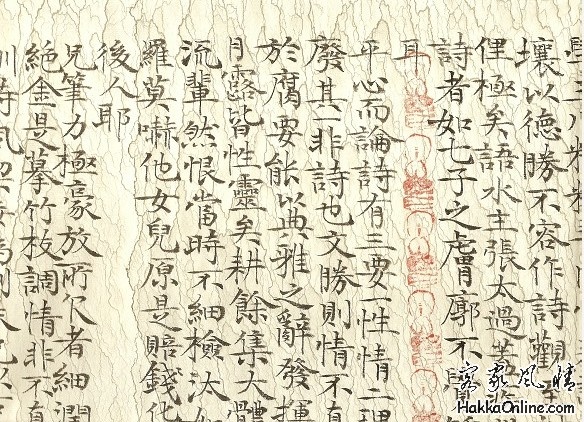 壞以德勝不容作詩觀
俚極矣語水主張太過若
詩者如七子之膚廓不
耳
平心而論詩有三要一性情二理
廢其一非詩也文勝則情不
於腐要能以典雅之辭發揮
月露皆性靈矣耕餘集大體
流輩然恨當時不細檢汰如
羅莫嚇他女兒原是賠錢化
後人耶
兄筆力極豪放所欠者細潤
絕全是摹竹枝調情非不
客家風情
HakkaOnline.com